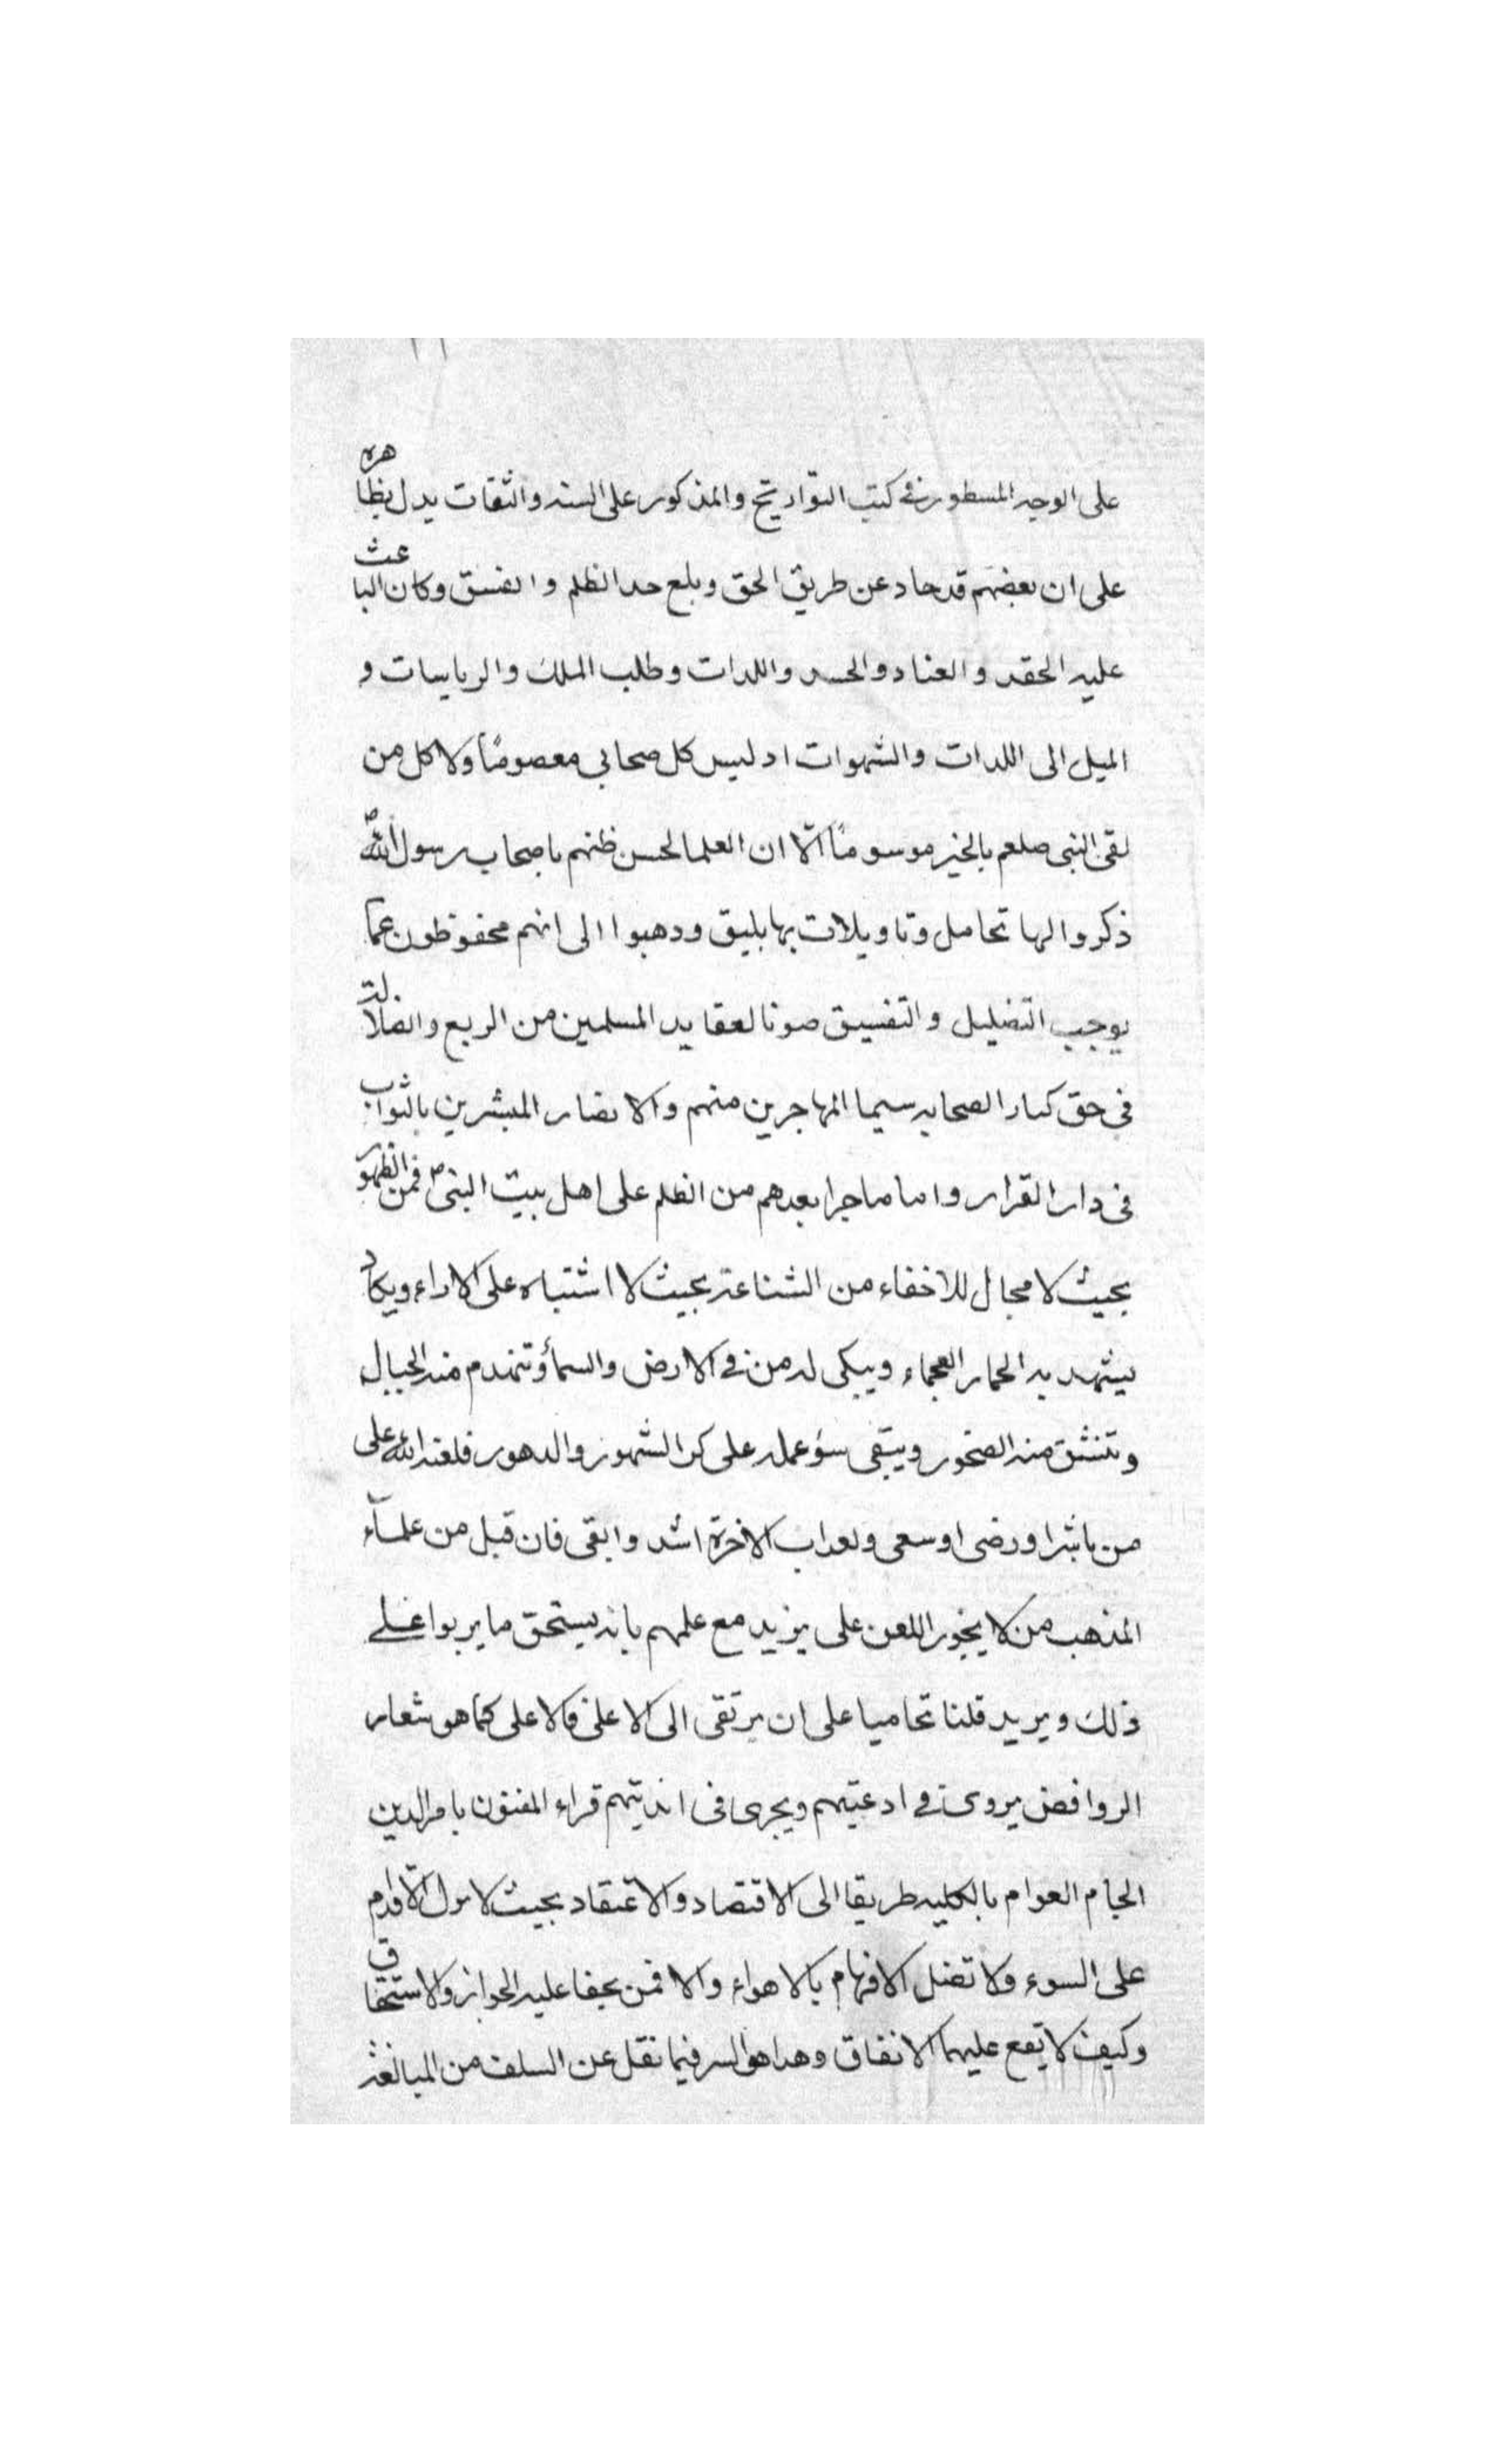 على الوجه المسطور في كتب التواريخ والمذكور على السنه والثقات يدل بظاهره
على ان بعضهم قد حاد عن طريق الحق وبلع حد الظلم والفسق وكان الباعث
عليه الحقد والعناد والحسد واللدات وطلب الملك والرياسات و
الميل الى اللدات والشهوات اد ليس كل صحابي معصومًا ولا كل من
لقى النبى صلعم بالخير موسومًا الّا ان العلما لحسن ظنهم باصحاب رسول الله ص
ذكروا لها تحامل وتاويلات بها بليق ودهبوا الى انهم محفوظون عما
يوجب التضليل والتفسيق صونا لعقايد المسلمين من الريع والضلالة
فى حق كبار الصحابه سيما المهاجرين منهم والانصار المبشرين بالثواب
فى دار القرار واما ماجرا بعدهم من الظلم على اهل بيت النبى ص فمن الظهور
بحيث لا مجال للاخفاء من الشناعة بحيث لا اشتباه على الاراء ويكاد
يشهد به الحمار العجماء ويبكى له من في الارض والسمأ وتنهدم منه الجبال
وتنشق منه الصخور ويبقى سؤ عمله على كر الشهور والدهور فلعنه الله على
من باشر او رضى او سعى ولعداب الاخرة اشد وابقى فان قيل من علمآء
المذهب من لا يجوز اللعن على يزيد مع علمهم بانه يستحق ما يربوا على
ذلك ويزيد قلنا تحاميا على ان يرتقى الى الاعلى فالاعلى كما هو شعار
الروافض يروى في ادعيتهم ويجرى فى انديتهم فراء المفنون بامر الدين
الجام العوام بالكليه طريقا الى الاقتصاد والاعتقاد بحيث لا يزل الاقدام
على السوء ولا تضل الافهام بالاهواء والا فمن يخفا عليه الجواز والاستحقاق
وكيف لا يقع عليهما الاتفاق وهدا هو السر فيما نقل عن السلف من المبالغة